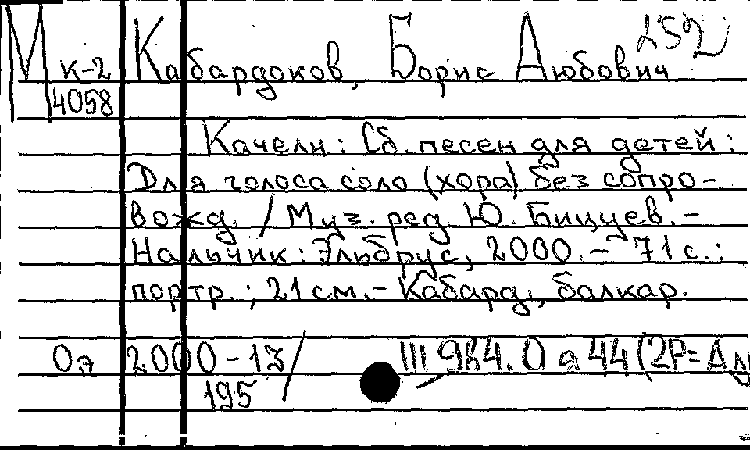 М к-2 Кабардоков, Борис Аюбович 252
4058
Качели: Сб. песен для детей:
Для голоса соло (хора) без сопро-
вожд. / Муз. ред. Ю. Бицуев. -
Нальчик: Эльбрус, 2000. - 71 с.:
портр.; 21 см. - Кабард., балкар.
Оя 2000-13/ Ш 984.0 я 44 (2Р=Ад
195